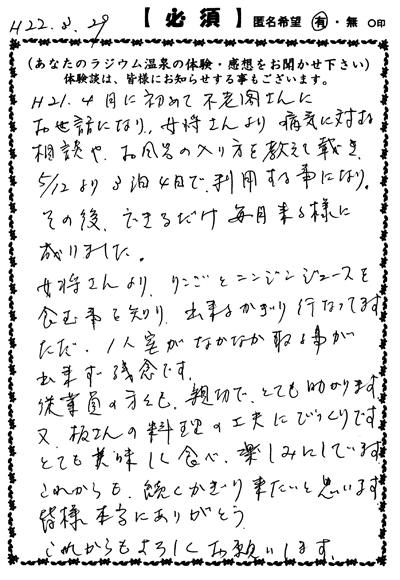 H22.8.29
【必須】 匿名希望 有・無 ○印
(あなたのラジウム温泉の体験・感想をお聞かせ下さい)
体験談は、皆様にお知らせする事もございます。
H21.4月に初めて不老閣さんに
お世話になり、女将さんより病気に対する
相談や、お風呂の入り方を教えて戴き、
5/12より3泊4日で、利用する事になり。
その後、できるだけ毎月来る様に
成りました。
女将さんより、リンゴとニンジンジュースを
飲む事を知り、出来るかぎり行なってます
ただ、1人室がなかなか取る事が
出来ず残念です。
従業員の方々も、親切で、とても助かります
又、板さんの料理の工夫にびっくりです
とても美味しく食べ、楽しみにしています
これからも、続くかぎり来たいと思います
皆様本当にありがとう
これからもよろしくお願いします。